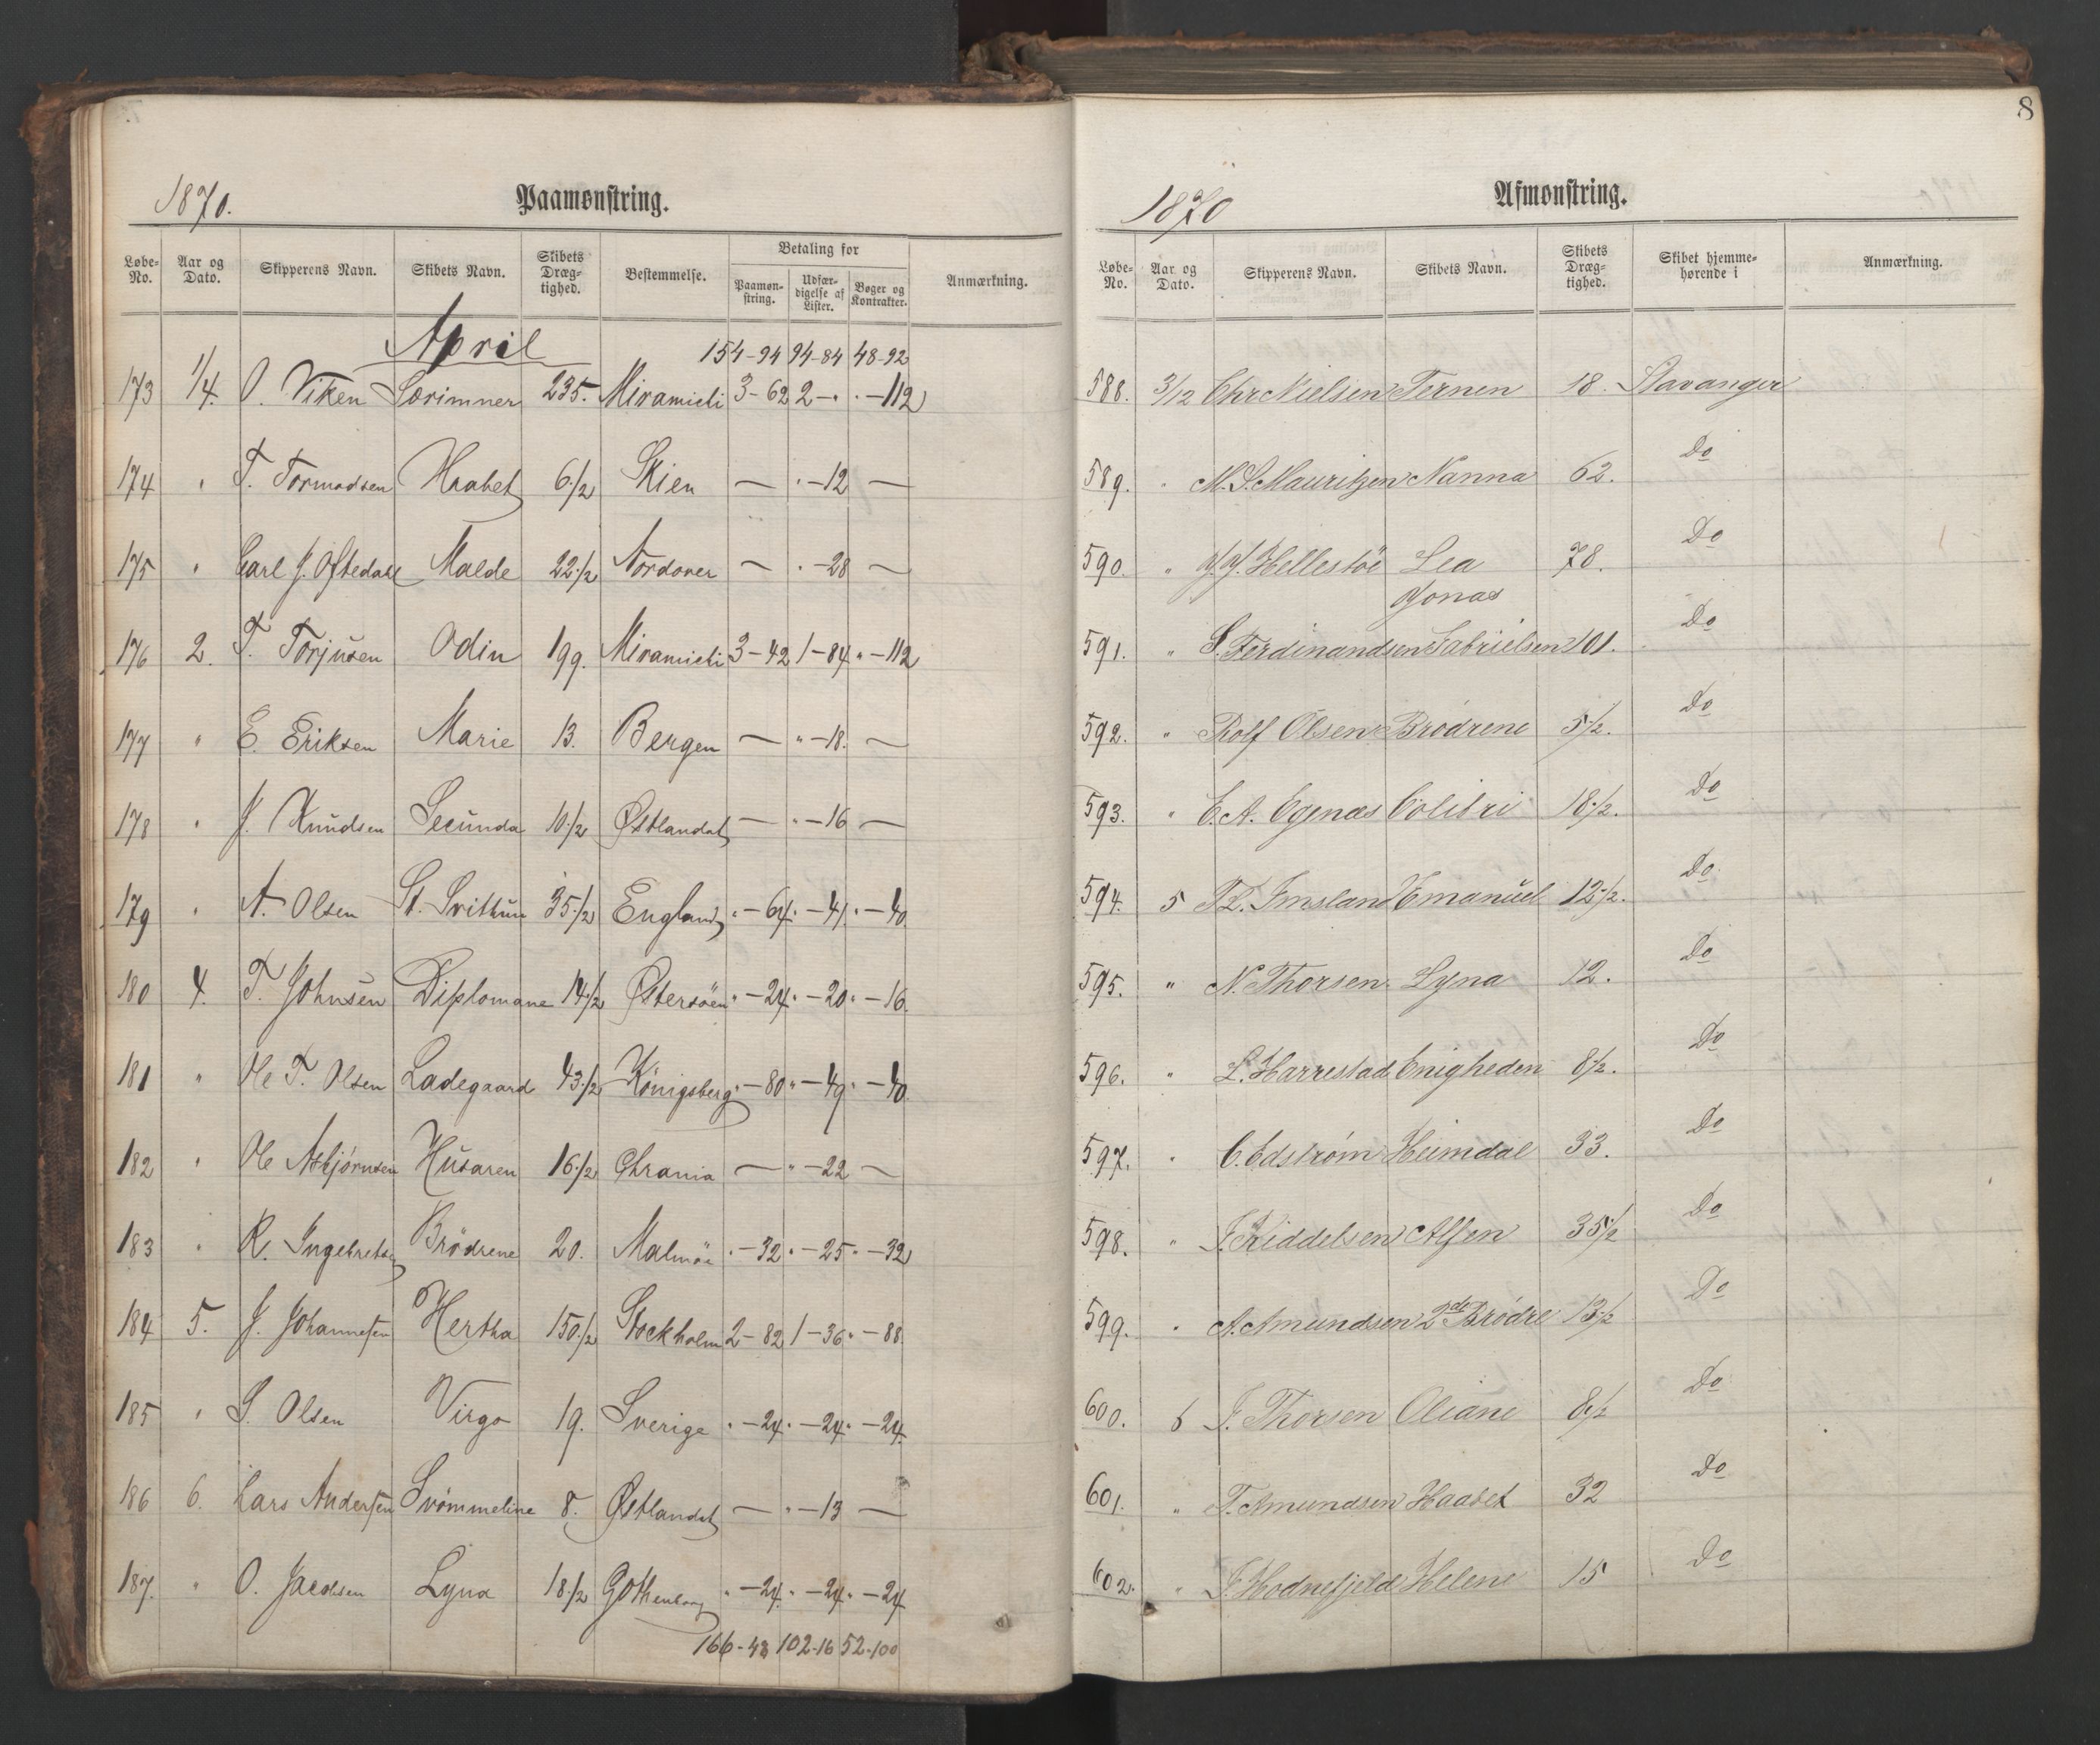 1870.
Paamønstring.
Løbe-No. Aar og Dato. Skipperens Navn. Skibets Navn. Skibets Dræg-tighed. Bestemmelse. Betaling for Paamøn-string. Udfær-digelse af Lister. Bøger og Kontrakter. Anmærkning.
April 154-94 94-84 48-92
173 1/4. O. Viken Særimner 235. Miramichi 3-62 2-" "-112
174 " T. Tormodsen Haabet 6 1/2 Skien — "-12 —
175 " Carl J. Oftedahl Malde 22 1/2 Nordover — "-28 —
176 2. T. Torjusen Odin 199. Miramichi 3-42 1-84 "-112
177 " E. Eriksen Marie 13. Bergen — "-18. —
178 " J. Knudsen Secunda 10 1/2 Østlandet — "-16 —
179 " A. Olsen St. Svithun 35 1/2 England "-64 "-41 "-40
180 4. T. Johnsen Diplomane 14 1/2 Østersöen "-24 "-20 "-16.
181 " Ole T. Olsen Ladegaard 43 1/2 Königsberg "-80 "-49 "-40.
182 " Ole Asbjørnsen Husaren 16 1/2 Chrania — "-22 —
183 " R. Ingebretsen Brödrene 20. Malmöe "-32 "-25 "-32
184 5. J. Johannesen Hertha 150 1/2 Stockholm 2-82 1-36 "-88.
185 " S. Olsen Virgo 19. Sverige "-24 "-24 "-24.
186 6. Lars Andersen Svömmeline 8. Østlandet — "-13 —
187. " O. Jacobsen Lyna 18 1/2 Gothenborg "-24 "-24 "-24
166-48 102-16 52-100
8
1870
Afmønstring.
Løbe-No. Aar og Dato. Skipperens Navn. Skibets Navn. Skibets Dræg-tighed. Skibet hjemme-hørende i Anmærkning.
588. 3/12 Chr Nielsen Ternen 18. Stavanger
589. " M. S. Mauritzen Nanna 62. Do
590. " J. J. Hellestöe Lea 78. Do
591. " S. Ferdinandsen Jonas Gabrielsen 101. Do
592. " Rolf Olsen Brødrene 5 1/2. Do
593. " E. A. Egenæs Colibri 18 1/2. Do
594. 5 T. L. Imsland Emanuel 12 1/2. Do
595. " N. Thorsen Lyna 12. Do
596. " L. Harrestad Enigheden 8 1/2. Do
597. " C. Edstrøm Heimdal 33. Do
598. " J. Kiddelsen Alfen 35 1/2 Do
599. " A. Amundsen 2de Brødre 13 1/2 Do
600. 6 J. Thorsen Oliane 8 1/2 Do
601. " T. Amundsen Haabet 32 Do
602. " J. Hodnefjeld Helene 15 Do